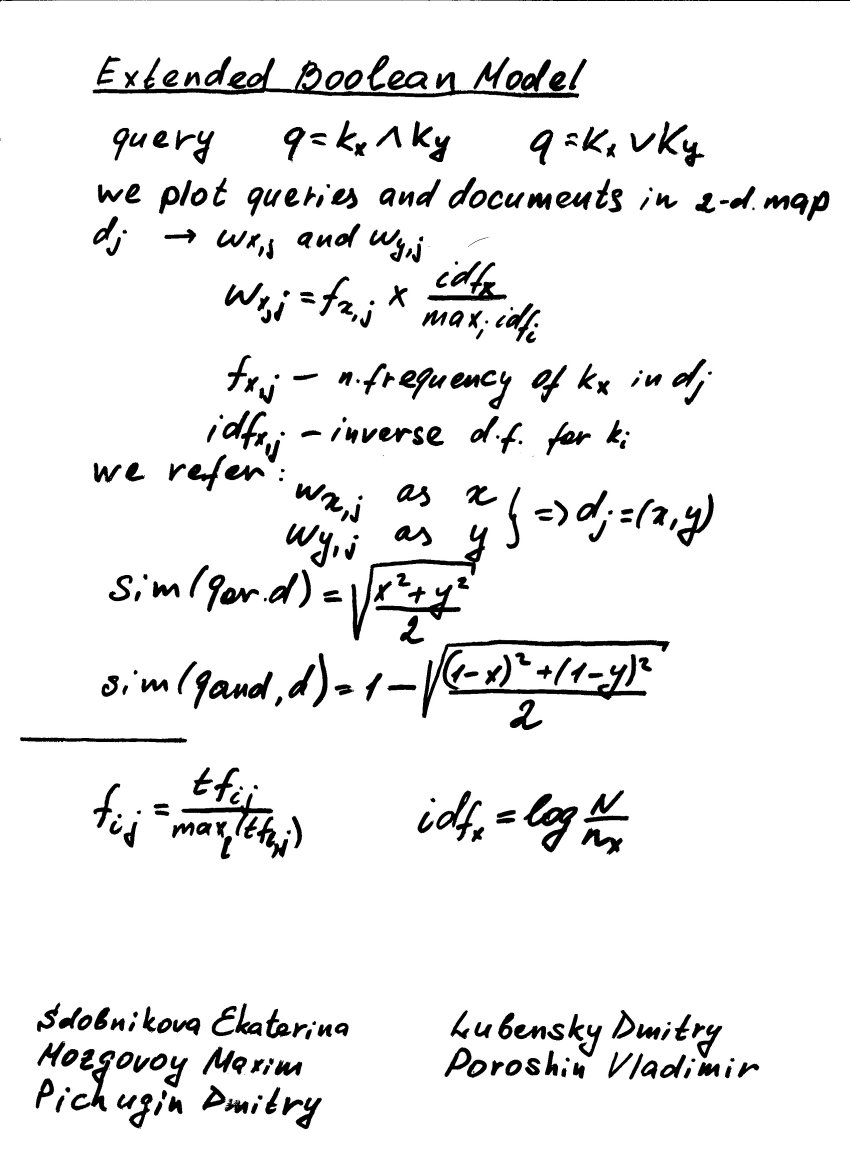 Extended Boolean Model
query q = kx ∧ ky q = kx ∨ ky
we plot queries and documents in 2-d. map
dj → wx,j and wy,j
wx,j = fx,j × idfx / maxi idfi
fx,j — n.frequency of kx in dj
idfx,j — inverse d.f. for ki
we refer: wx,j as x
wy,j as y } => dj = (x,y)
sim(qor.d) = √((x² + y²) / 2)
sim(qand, d) = 1 — √(((1-x)² + (1-y)²) / 2)
fi,j = tfi,j / maxl(tfl,j) idfx = log N / nx
Sdobnikova Ekaterina Lubensky Dmitry
Mozgovoy Maxim Poroshin Vladimir
Pichugin Dmitry